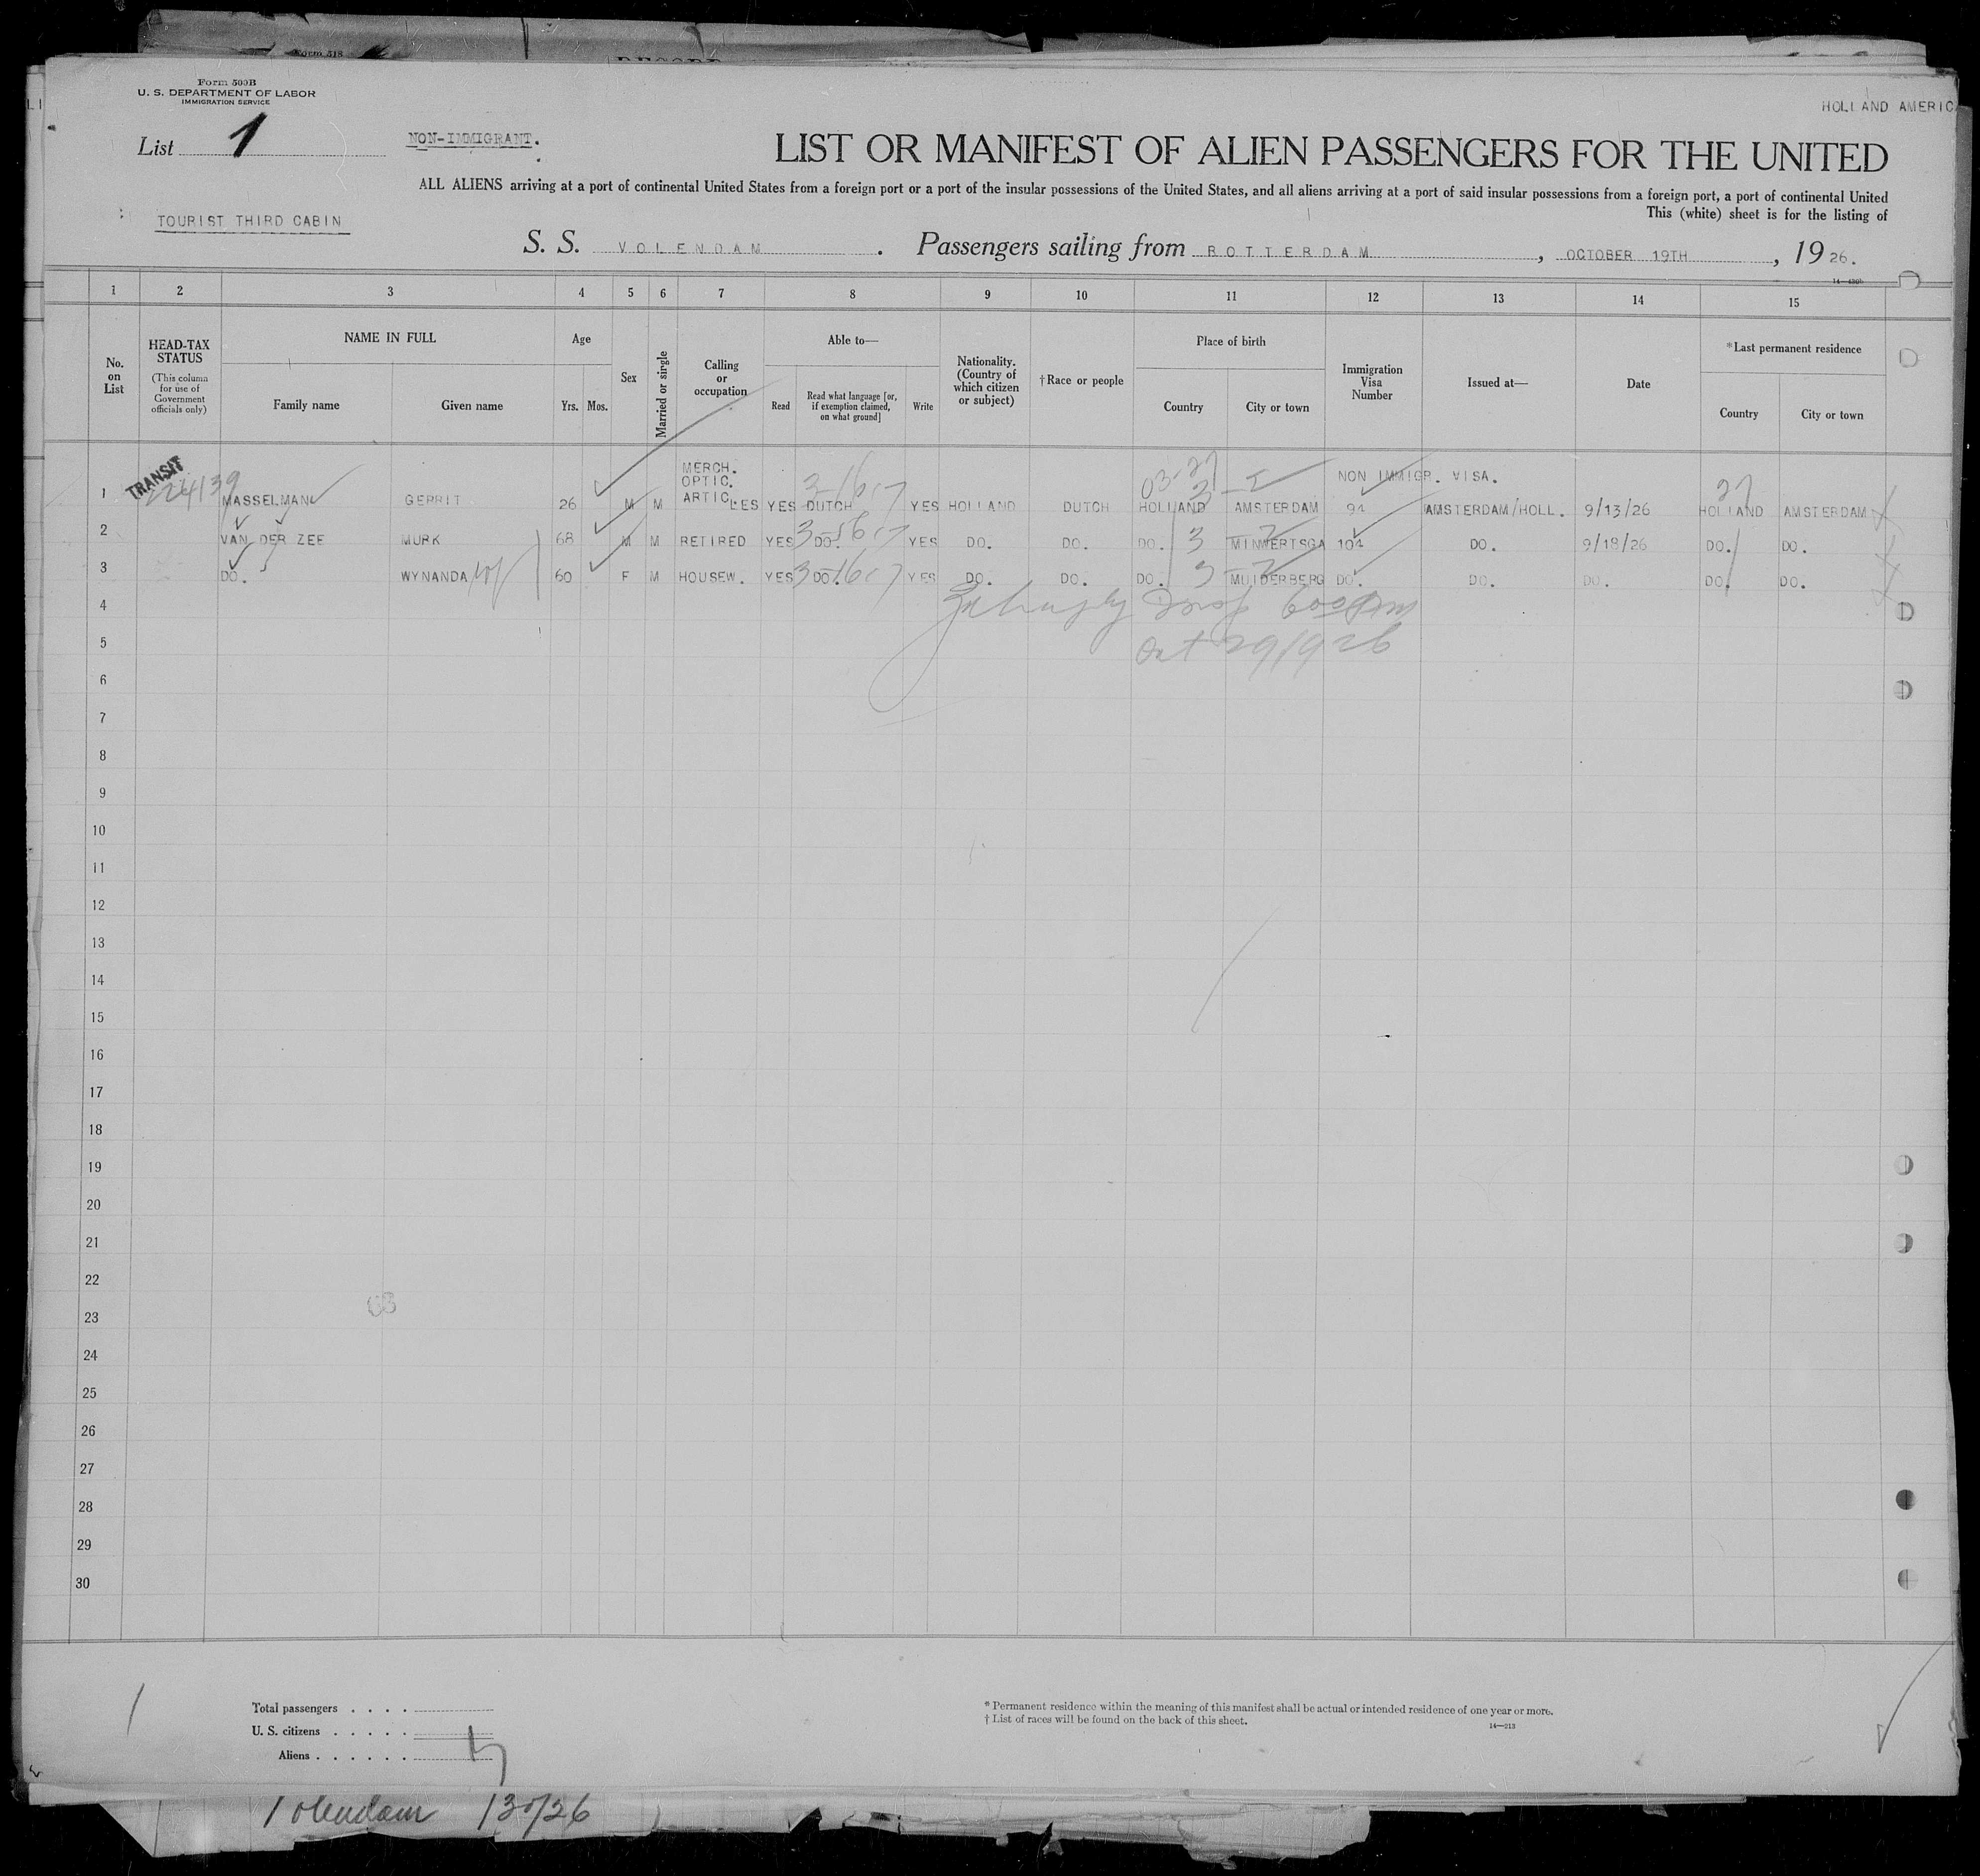 Form 500B
U. S. DEPARTMENT OF LABOR
IMMIGRATION SERVICE
HOLLAND AMERIC
List 1
NON-IMMIGRANT.
LIST OR MANIFEST OF ALIEN PASSENGERS FOR THE UNITED
ALL ALIENS arriving at a port of continental United States from a foreign port or a port of the insular possessions of the United States, and all aliens arriving at a port of said insular possessions from a foreign port, a port of continental United
This (white) sheet is for the listing of
TOURIST THIRD CABIN
S. S. VOLENDAM. Passengers sailing from ROTTERDAM, OCTOBER 19TH, 1926.
1 2 3 4 5 6 7 8 9 10 11 12 13 14 15
No. on List
HEAD-TAX STATUS (This column for use of Government officials only)
NAME IN FULL
Family name
Given name
Age
Yrs. Mos.
Sex
Married or single
Calling or occupation
Able to—
Read
Read what language [or, if exemption claimed, on what ground]
Write
Nationality. (Country of which citizen or subject)
†Race or people
Place of birth
Country
City or town
Immigration Visa Number
Issued at—
Date
*Last permanent residence
Country
City or town
TRANSIT
1 MASSELMAN GERRIT 26 M M MERCH. OPTIC. ARTIC.LES YES DUTCH YES HOLLAND DUTCH HOLLAND AMSTERDAM NON IMMIGR. VISA. 94 AMSTERDAM/HOLL. 9/13/26 HOLLAND AMSTERDAM
2 VAN DER ZEE MURK 68 M M RETIRED YES DO. YES DO. DO. DO. MINNERTSGA 104 DO. 9/18/26 DO. DO.
3 DO. WYNANDA 60 F M HOUSEW. YES DO. YES DO. DO. DO. MUIDERBERG DO. DO. DO. DO. DO.
4
Oct 29/926
5
6
7
8
9
10
11
12
13
14
15
16
17
18
19
20
21
22
23
24
25
26
27
28
29
30
Total passengers . . . .
U. S. citizens . . . . .
Aliens . . . . . .
* Permanent residence within the meaning of this manifest shall be actual or intended residence of one year or more.
† List of races will be found on the back of this sheet.
14—213
Volendam 130/26